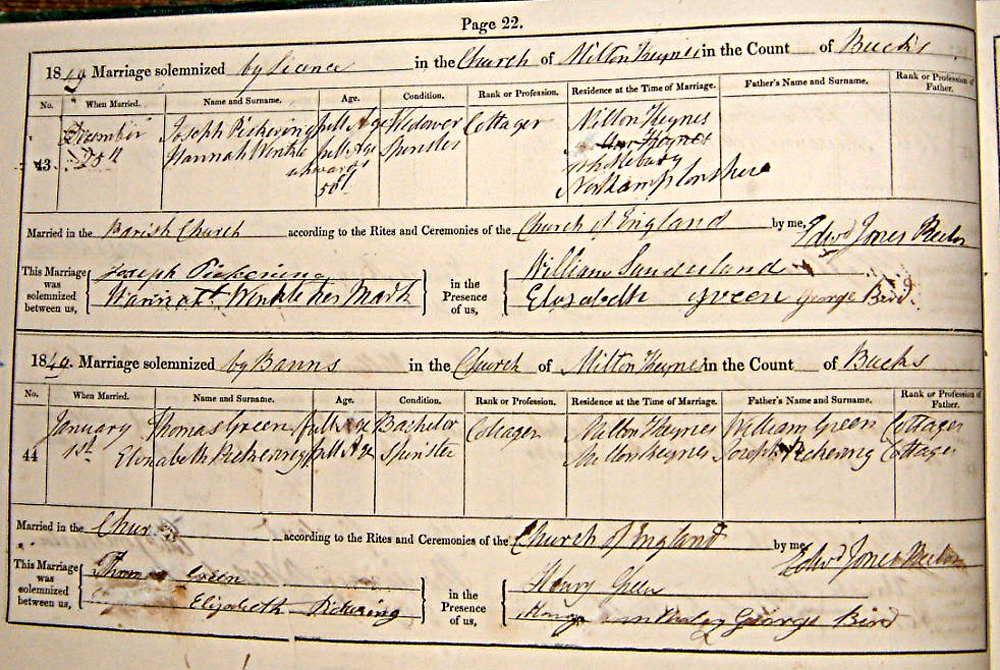 Page 22.
1849 Marriage solemnized by Licence in the Church of Milton Keynes in the Count of Bucks
No. When Married. Name and Surname. Age. Condition. Rank or Profession. Residence at the Time of Marriage. Father's Name and Surname. Rank or Profession of Father.
43 December 25th Joseph Pickering full Age Widower Cottager Milton Keynes
Hannah Winkle full Age Spinster
upwards
50
Whittlebury
Northamptonshere
Married in the Parish Church according to the Rites and Ceremonies of the Church of England by me, Edwd Jones Rector
This Marriage was solemnized between us, Joseph Pickering in the Presence of us, William Sunderland
Hannah Winkle her Mark Elizabeth Green George Bird
1849. Marriage solemnized by Banns in the Church of Milton Keynes in the Count of Bucks
No. When Married. Name and Surname. Age. Condition. Rank or Profession. Residence at the Time of Marriage. Father's Name and Surname. Rank or Profession of Father.
44 January 1st Thomas Green full Age Bachelor Cottager Milton Keynes William Green Cottager
Elizabeth Pickering full Age Spinster Milton Keynes Joseph Pickering Cottager
Married in the Chur according to the Rites and Ceremonies of the Church of England by me, Edwd Jones Rector
This Marriage was solemnized between us, Thomas Green in the Presence of us, Henry Green
Elizabeth Pickering George Bird